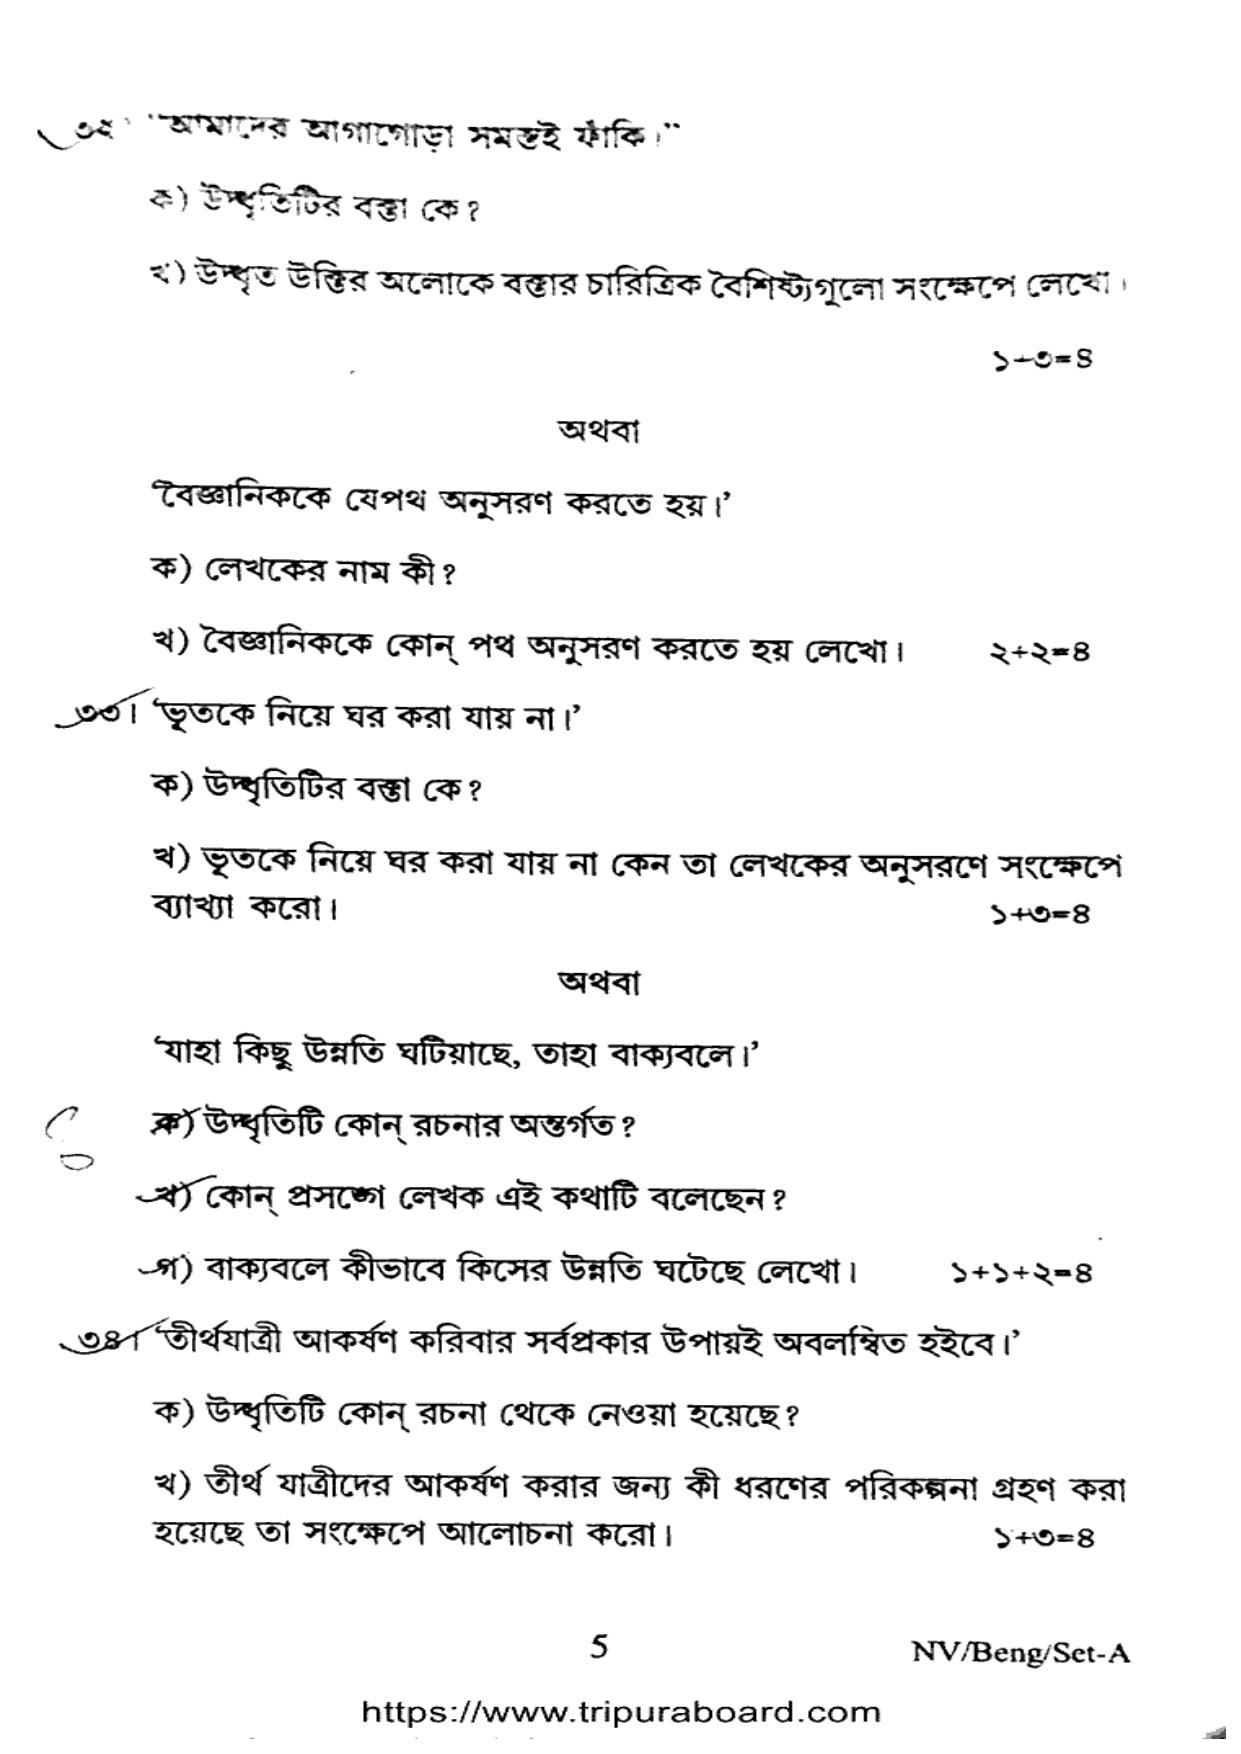 ৩২। "আমাদের আগাগোড়া সমস্তই ফাঁকি।"
ক) উদ্ধৃতিটির বক্তা কে?
খ) উদ্ধৃত উক্তির অলোকে বক্তার চারিত্রিক বৈশিষ্ট্যগুলো সংক্ষেপে লেখো।
১+৩=৪
অথবা
'বৈজ্ঞানিককে যেপথ অনুসরণ করতে হয়।'
ক) লেখকের নাম কী?
খ) বৈজ্ঞানিককে কোন্ পথ অনুসরণ করতে হয় লেখো। ২+২=৪
৩৩। 'ভূতকে নিয়ে ঘর করা যায় না।'
ক) উদ্ধৃতিটির বক্তা কে?
খ) ভূতকে নিয়ে ঘর করা যায় না কেন তা লেখকের অনুসরণে সংক্ষেপে
ব্যাখ্যা করো। ১+৩=৪
অথবা
'যাহা কিছু উন্নতি ঘটিয়াছে, তাহা বাক্যবলে।'
ক) উদ্ধৃতিটি কোন্ রচনার অন্তর্গত?
খ) কোন্ প্রসঙ্গে লেখক এই কথাটি বলেছেন?
গ) বাক্যবলে কীভাবে কিসের উন্নতি ঘটেছে লেখো। ১+১+২=৪
৩৪। 'তীর্থযাত্রী আকর্ষণ করিবার সর্বপ্রকার উপায়ই অবলম্বিত হইবে।'
ক) উদ্ধৃতিটি কোন্ রচনা থেকে নেওয়া হয়েছে?
খ) তীর্থ যাত্রীদের আকর্ষণ করার জন্য কী ধরণের পরিকল্পনা গ্রহণ করা
হয়েছে তা সংক্ষেপে আলোচনা করো। ১+৩=৪
5 NV/Beng/Set-A
https://www.tripuraboard.com